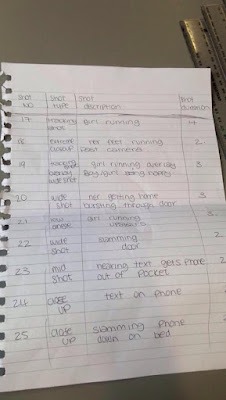 Shot Shot Shot Shot
NO type discription duration
17 tracking girl running 4
shot
18 extreme her feet running 2
closeup feet camera
19 tracking girl running 3
wide shot Boy/girl
20 wide her getting home 3
shot bursting through door
21 low girl running 3
angle upstairs
22 wide slamming 2
shot door
23 mid hearing text gets phone 2
shot out of pocket
24 close text on phone 2
UP
25 close slamming phone
UP down on bed